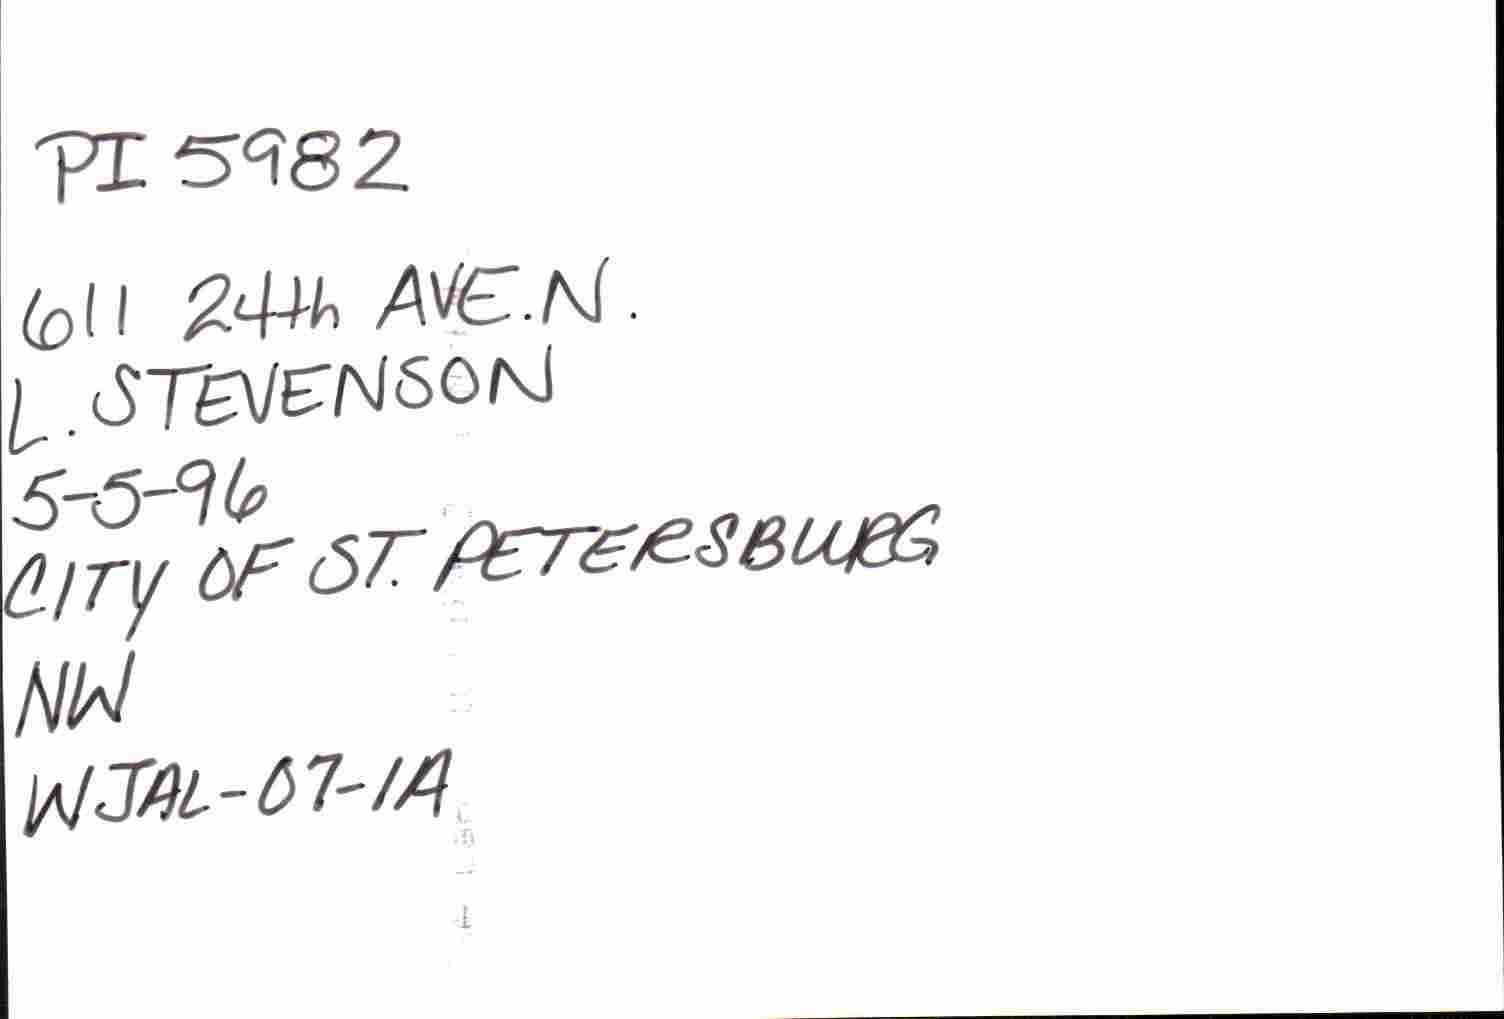 PI 5982
611 24th AVE.N.
L. STEVENSON
5-5-96
CITY OF ST. PETERSBURG
NW
WJAL-07-1A